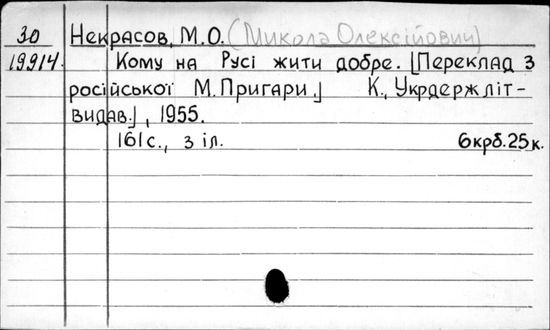 30 Некрасов, М.О. (Микола Олексійович)
19914. Кому на Русі жити добре. [Переклад з
російської М. Пригари.] К., Укрдержліт-
видав.], 1955.
161с., з іл. 6крб.25к.